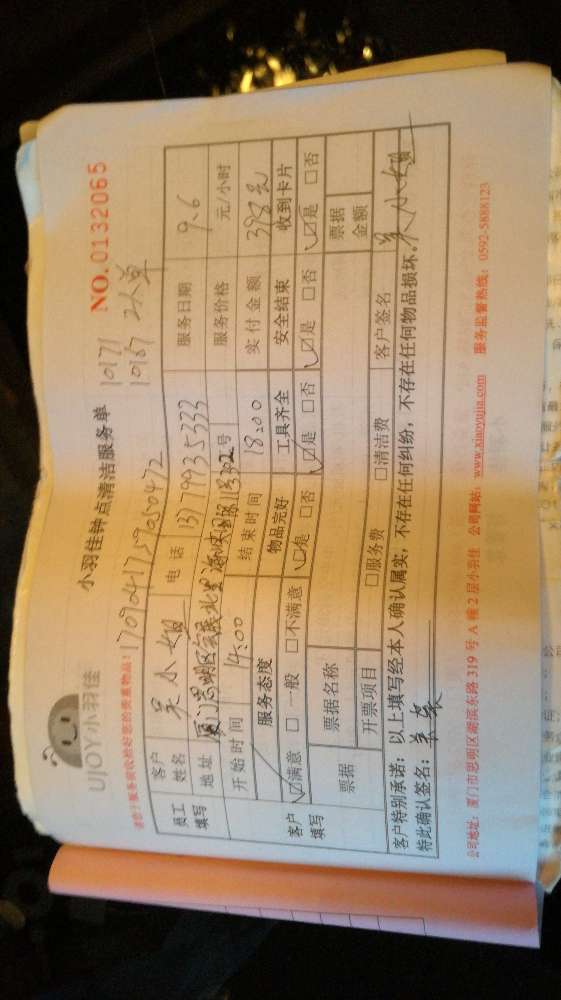 UJOY小羽佳
小羽佳钟点清洁服务单
NO.0132065
10171
10187
请您于服务前收检好您的贵重物品!
1709041759050472
员工填写
客户姓名 吴小姐 电话 13779935333 服务日期 9.6
地址 厦门思明区 332号 服务价格 元/小时
开始时间 14:00 结束时间 18:00 实付金额 398元
客户填写
服务态度 物品完好 工具齐全 安全结束 收到卡片
☑满意 □一般 □不满意 ☑是 □否 ☑是 □否 ☑是 □否 ☑是 □否
票据 票据名称 票据金额
开票项目 □服务费 □清洁费
客户特别承诺:以上填写经本人确认属实,不存在任何纠纷,不存在任何物品损坏。
特此确认签名: 客户签名 吴小姐
公司地址:厦门市思明区湖滨东路319号A幢2层小羽佳 公司网站:www.xiaoyujia.com 服务监督热线:0592-5888123